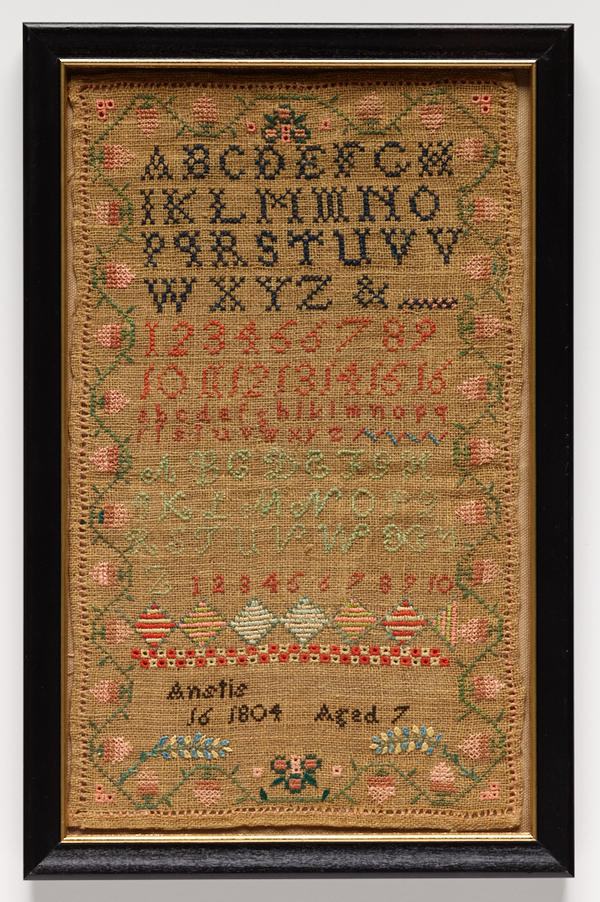 ABCDEFGH
IKLMMNO
PQRSTUVV
WXYZ &
123456789
10 11 12 13 14 15 16
abcdefghiklmnopq
rſstuvwxyz
ABCDEFGH
IKLMNOPQ
RSTUVWXY
Z 1 2 3 4 5 6 7 8 9 10
Anstis
16 1804 Aged 7